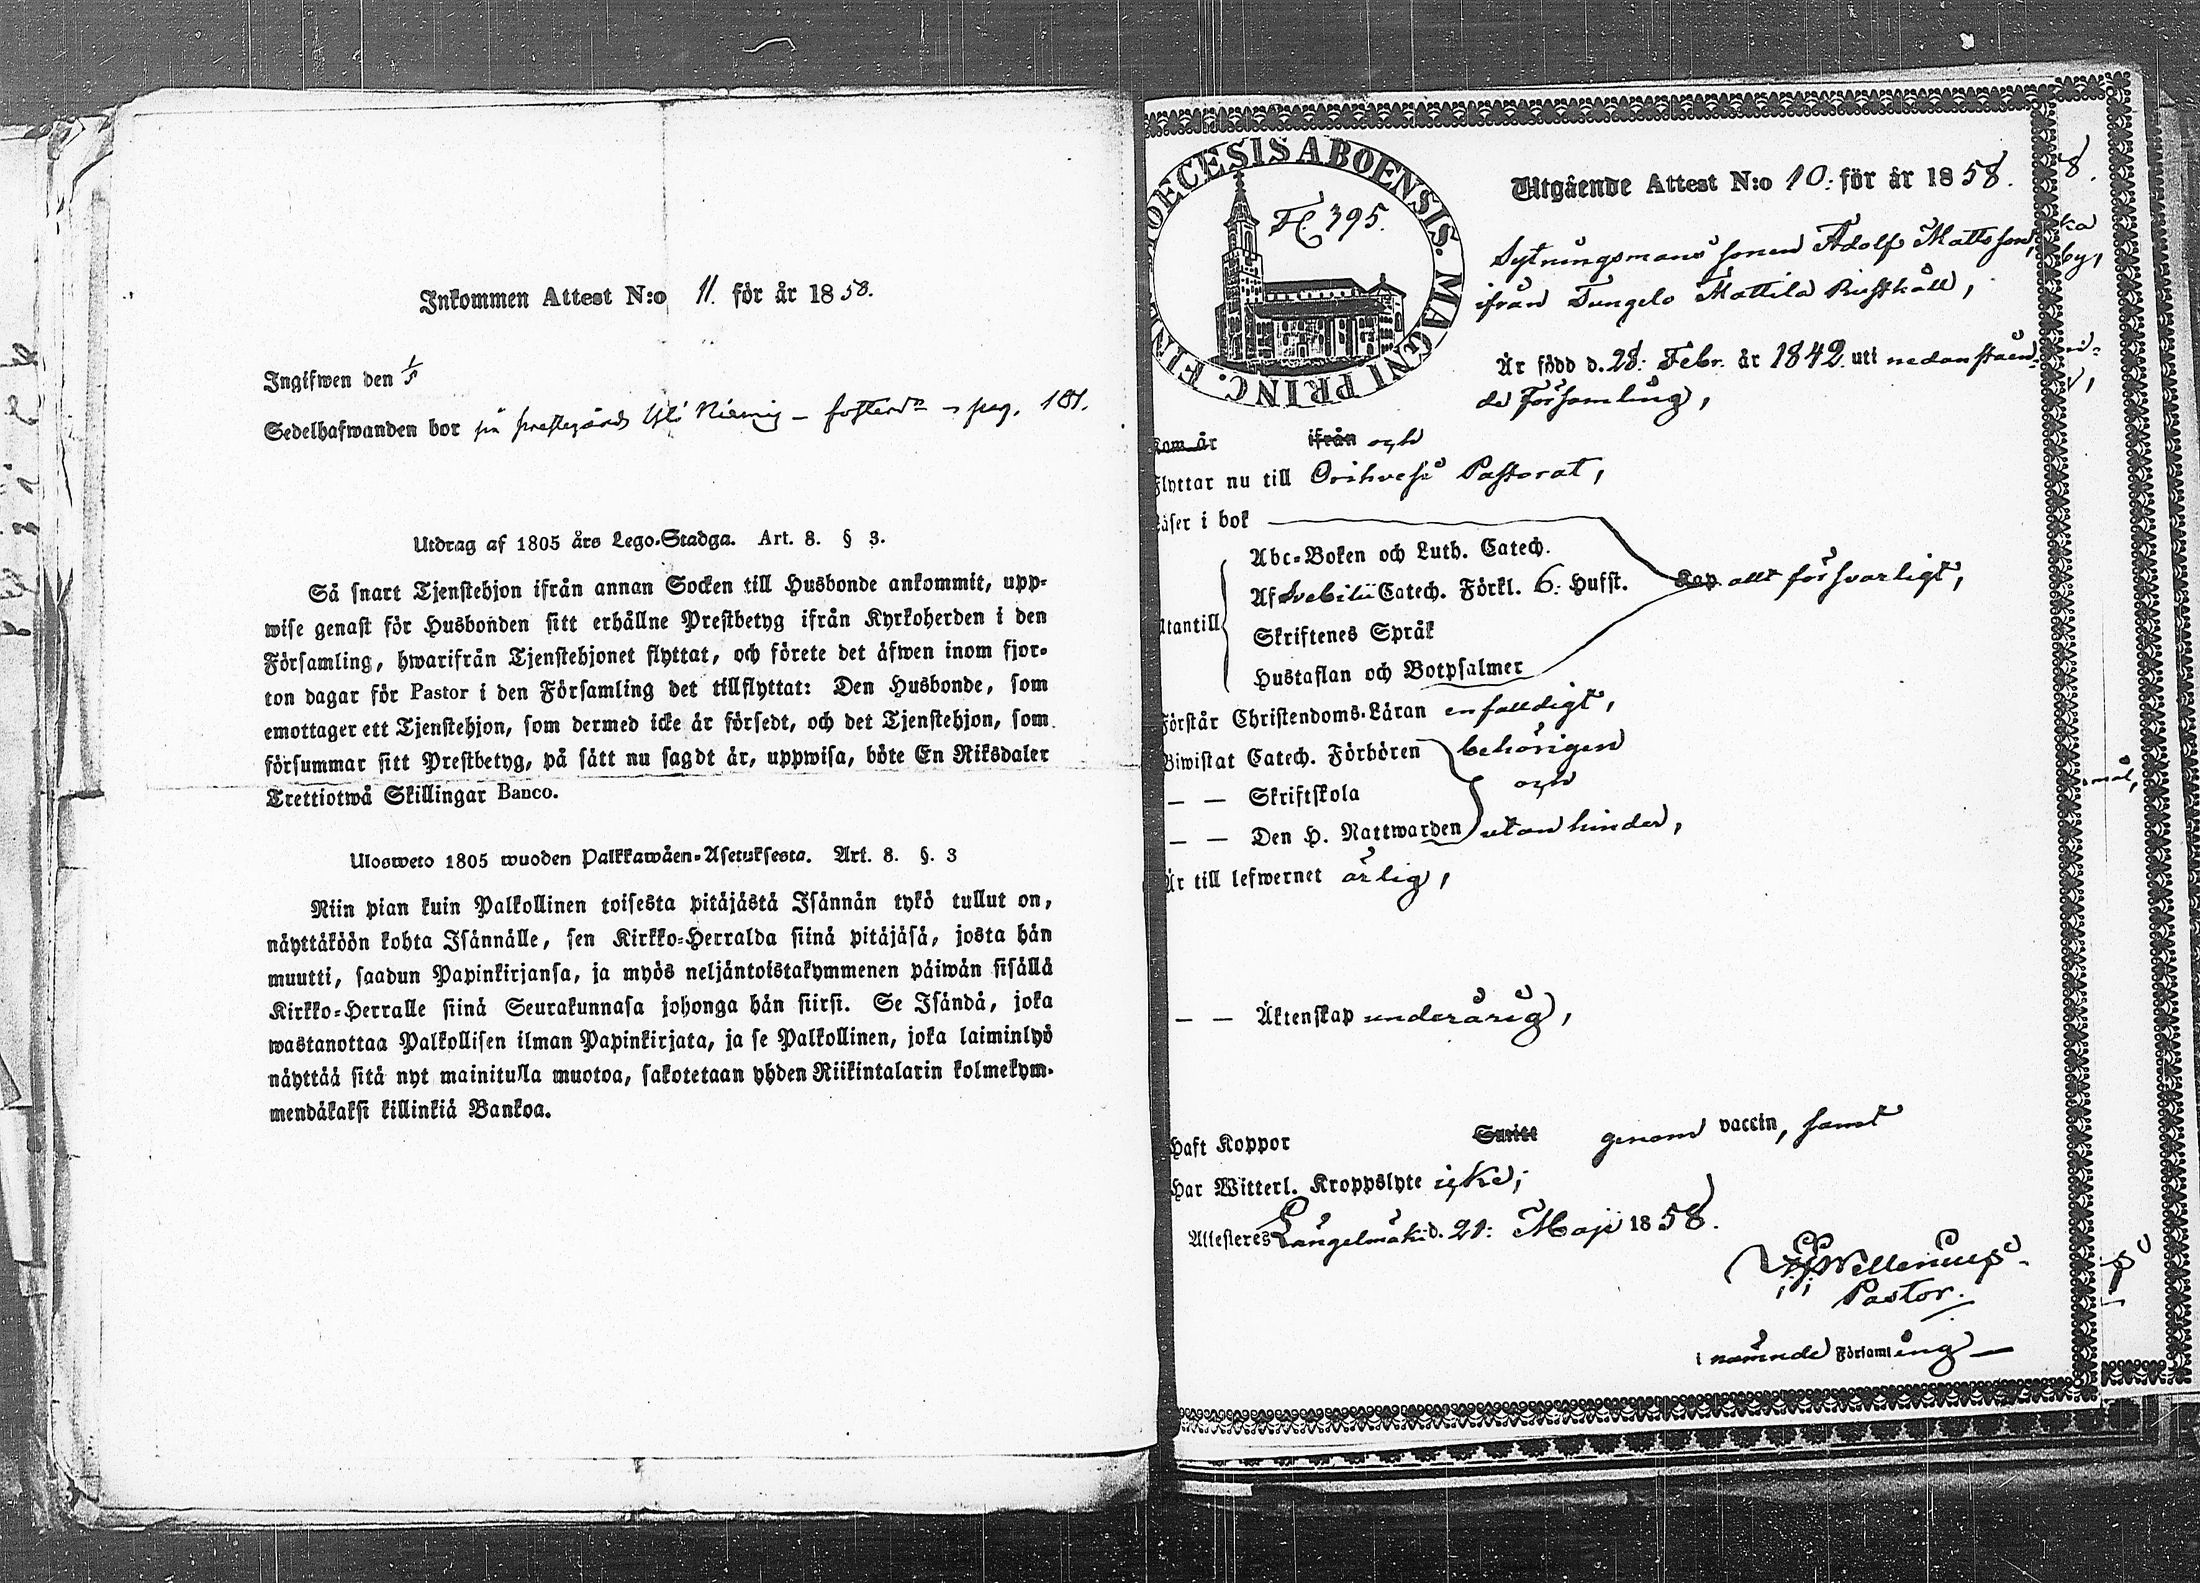 Inkommen Attest N:o 11. för år 1858.
Ingifwen den 1/5
Sedelhafwanden bor på prestegårds Yli Niemig – pag. 181.
Utdrag af 1805 års Lego-Stadga. Art. 8. § 3.
Så snart Tjenstehjon ifrån annan Socken till Husbonde ankommit, upp-
wise genast för Husbonden sitt erhållne Prestbetyg ifrån Kyrkoherden i den
Församling, hwarifrån Tjenstehjonet flyttat, och förete det äfwen inom fjor-
ton dagar för Pastor i den Församling det tillflyttat: Den Husbonde, som
emottager ett Tjenstehjon, som dermed icke är försedt, och det Tjenstehjon, som
försummar sitt Prestbetyg, på sätt nu sagdt är, uppwisa, böte En Riksdaler
Trettiotwå Skillingar Banco.
Ulosweto 1805 wuoden Palkkawäen-Asetuksesta. Art. 8. §. 3
Niin pian kuin Palkollinen toisesta pitäjästä Isännän tykö tullut on,
näyttäköön kohta Isännälle, sen Kirkko-Herralda siinä pitäjäsä, josta hän
muutti, saadun Papinkirjansa, ja myös neljäntoistakymmenen päiwän sisällä
Kirkko-Herralle siinä Seurakunnasa johonga hän siirsi. Se Isändä, joka
wastanottaa Palkollisen ilman Papinkirjata, ja se Palkollinen, joka laiminlyö
näyttää sitä nyt mainitulla muotoa, sakotetaan yhden Riikintalarin kolmekym-
mendäkaksi killinkiä Bankoa.
DIOECESIS ABOENSIS. MAGNI PRINC. FIN
F. 395.
Utgående Attest N:o 10: för år 1858.
Sytningsmans sonen Adolf Mattsson,
ifrån Tungelo Mattila Rusthåll,
Är född d. 28: Febr. år 1842. uti nedanståen-
de Församling,
Kom år ifrån och
Flyttar nu till Orihvesi Pastorat,
Läser i bok
Abc-Boken och Luth. Catech.
Af Svebilii Catech. Förkl. 6: Hufst. Kap allt försvarligt,
Utantill
Skriftenes Språk
Hustaflan och Botpsalmer
Förstår Christendoms-Läran enfaldigt,
Biwistat Catech. Förhören behörigen
— — Skriftskola och
— — Den H. Nattwarden utan hinder,
Är till lefwernet ärlig,
— — Äktenskap underårig,
Haft Koppor Smitt genom vaccin, samt
Har Witterl. Kroppslyte icke;
Attesteres Längelmäki d. 21: Maji 1858.
Pastor.
i nämnde Församling —